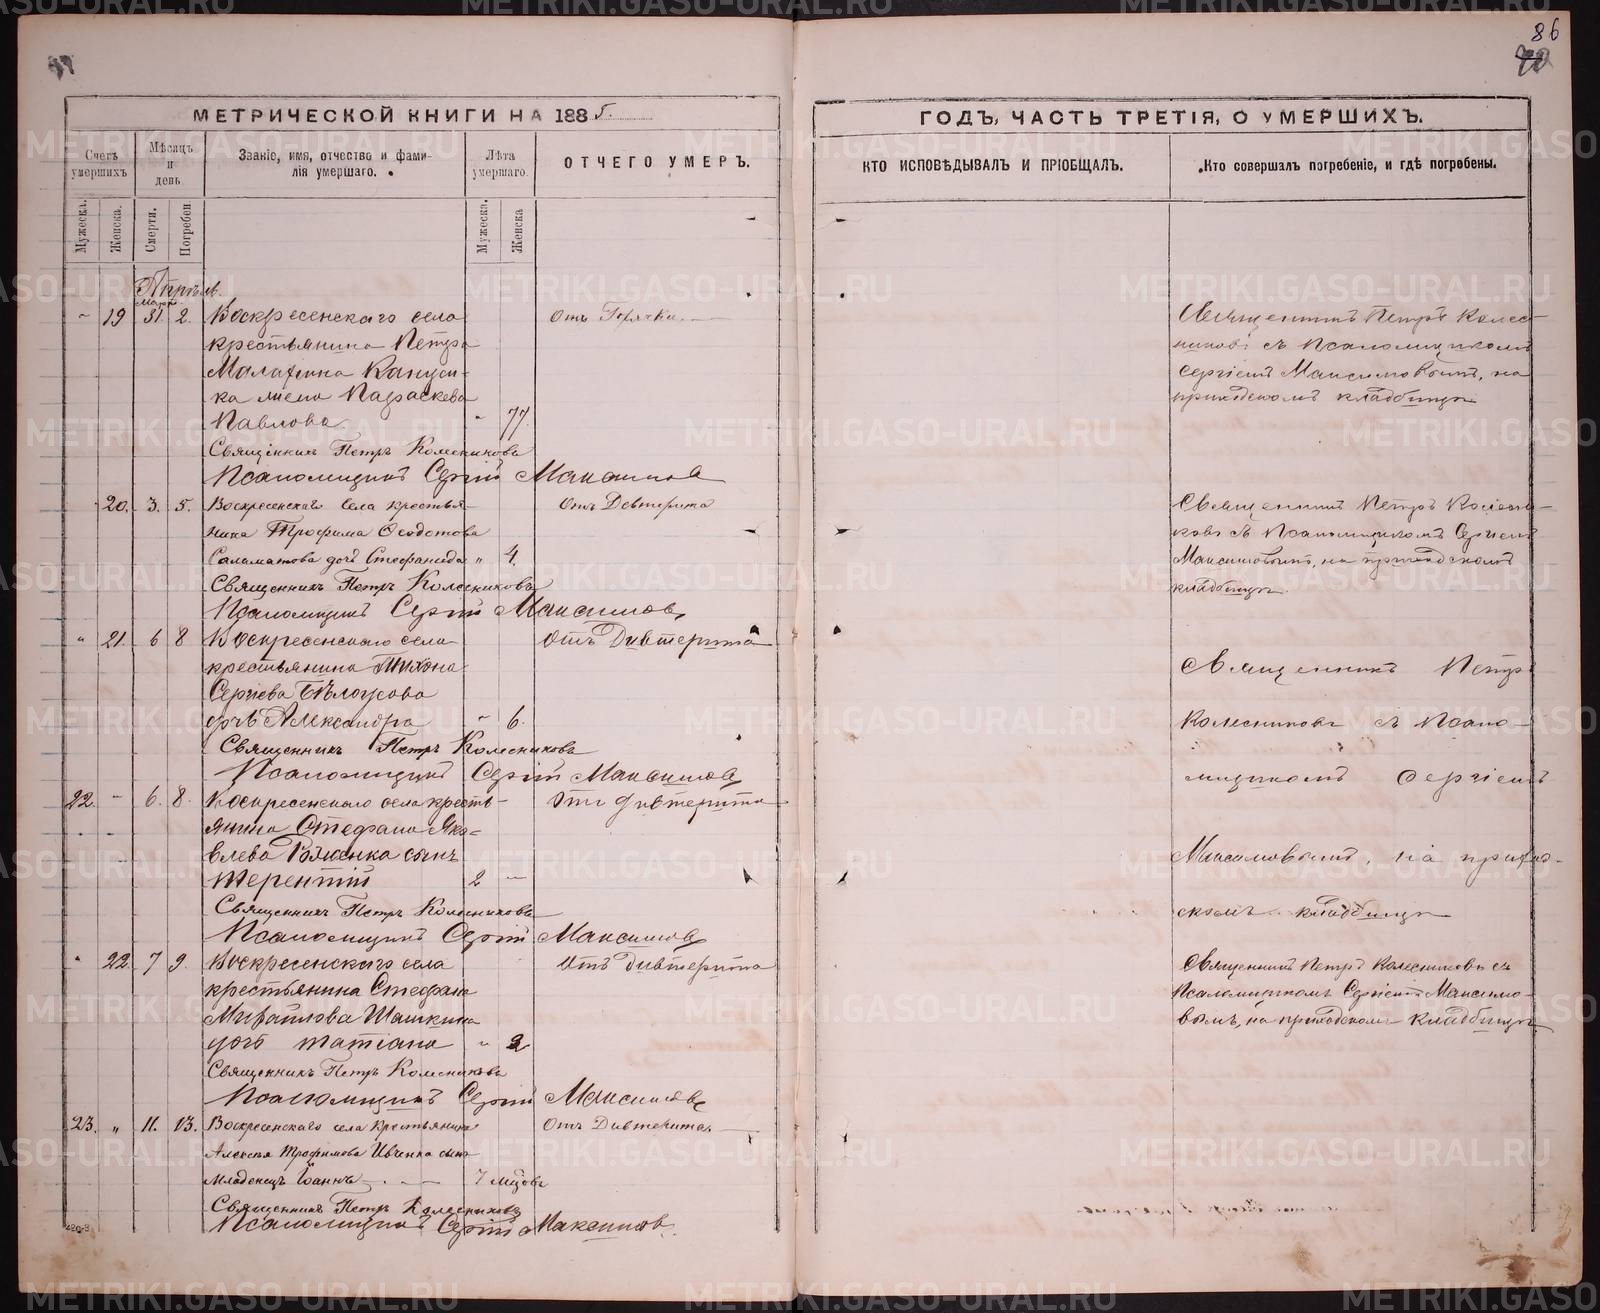 86
МЕТРИЧЕСКОЙ КНИГИ НА 1885.
Счетъ умершихъ
Мѣсяцъ и день
Званіе, имя, отчество и фами-
лія умершаго.
Лѣта умершаго.
ОТЧЕГО УМЕРЪ.
Мужеска.
Женска.
Смерти.
Погребен
Мужеска.
Женска
Апрѣль.
марта
19 31. 2. Воскресенскаго села Отъ Горячки.
крестьянина Петра
жена Параскева
Павлова " 77.
Священникъ Петръ Колесниковъ
Псаломщикъ Сергій Максимовъ
20. 3. 5. Воскресенскаго села крестья-
нина Трофима Ѳеодотова
Саламатова дочь Стефанида " 4.
Отъ Дивтерита
Священникъ Петръ Колесниковъ
Псаломщикъ Сергій Максимовъ
" 21. 6 8 Воскресенскаго села Отъ Дивтерита
крестьянина Тихона
Сергіева Бѣлоусова
дочь Александра " 6.
Священникъ Петръ Колесниковъ
Псаломщикъ Сергій Максимовъ
22. - 6. 8. Воскресенскаго села кресть- Отъ дивтерита
янина Стефана Яко-
влева сынъ
Терентій 2 -
Священникъ Петръ Колесниковъ
Псаломщикъ Сергій Максимовъ
" 22. 7 9. Воскресенскаго села Отъ дивтерита
крестьянина Стефана
Михайлова Шашкина
дочь Татіана " 2
Священникъ Петръ Колесниковъ
Псаломщикъ Сергій Максимовъ
23. " 11. 13. Воскресенскаго села крестьянина Отъ Дивтерита.
Алексѣя Трофимова Ивченка сынъ
Младенецъ Іоаннъ 7 мѣцовъ
Священникъ Петръ Колесниковъ
Псаломщикъ Сергій Максимовъ
ГОДЪ, ЧАСТЬ ТРЕТІЯ, О УМЕРШИХЪ.
КТО ИСПОВѢДЫВАЛЪ И ПРІОБЩАЛЪ.
Кто совершалъ погребеніе, и гдѣ погребены.
Священникъ Петръ Колес-
никовъ съ Псаломщикомъ
Сергіемъ Максимовымъ, на
приходскомъ кладбищѣ
Священникъ Петръ Колесни-
ковъ съ Псаломщикомъ Сергіемъ
Максимовымъ, на приходскомъ
кладбищѣ.
Священникъ Петръ
Колесниковъ съ Псало-
мщикомъ Сергіемъ
Максимовымъ, на приход-
скомъ кладбищѣ
Священникъ Петръ Колесниковъ съ
Псаломщикомъ Сергіемъ Максимо-
вымъ, на приходскомъ кладбищѣ
METRIKI.GASO-URAL.RU